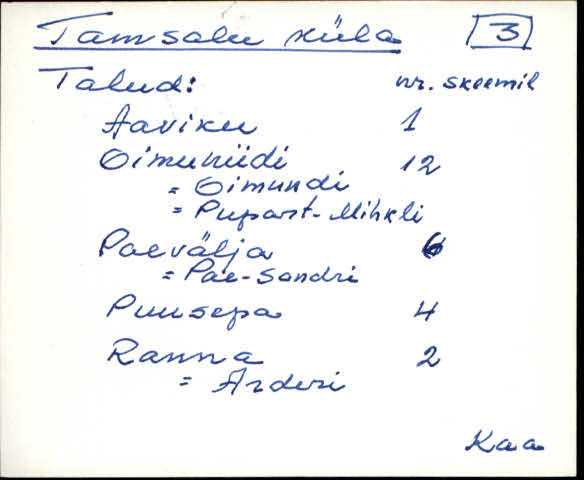 Tamsalu küla 3
Talud: nr. skeemil
Aaviku 1
Oimuniidi 12
= Oimundi
= Pupart-Mihkli
Paevälja 6
= Pae-Sandri
Puusepa 4
Ranna 2
= Anderi
Kaa